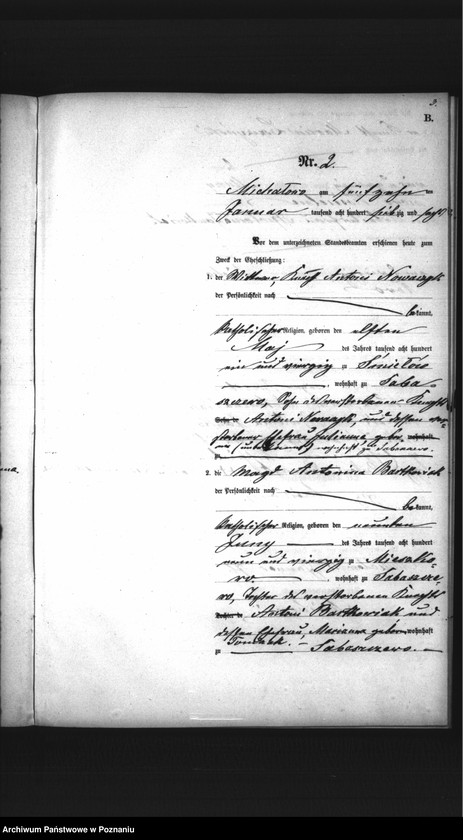 2.
B.
Nr. 2.
Michałowo am fünfzehn ten
Januar tausend acht hundert siebzig und sechs
Vor dem unterzeichneten Standesbeamten erschienen heute zum
Zweck der Eheschließung:
1. der Wittwer, Knecht Antoni Nowaczyk
der Persönlichkeit nach
bekannt,
katholischer Religion, geboren den elften
Maj des Jahres tausend acht hundert
ein und vierzig zu
, wohnhaft zu Saba-
szczewo, Sohn des verstorbenen Knechts
Antoni Nowaczyk, und dessen ver-
storbener Ehefrau Julianna gebo-
wohnhaft zu Sabaszczewo.
2. die Magd Antonina Bartkowiak
der Persönlichkeit nach
bekannt,
katholischer Religion, geboren den neunten
Juny des Jahres tausend acht hundert
neun und vierzig zu Mieczko-
wo wohnhaft zu Sabaszcze-
wo, Tochter des verstorbenen Knechts
Antoni Bartkowiak und
dessen Ehefrau, Marianna geboren wohnhaft
zu Sabaszczewo.
Archiwum Państwowe w Poznaniu